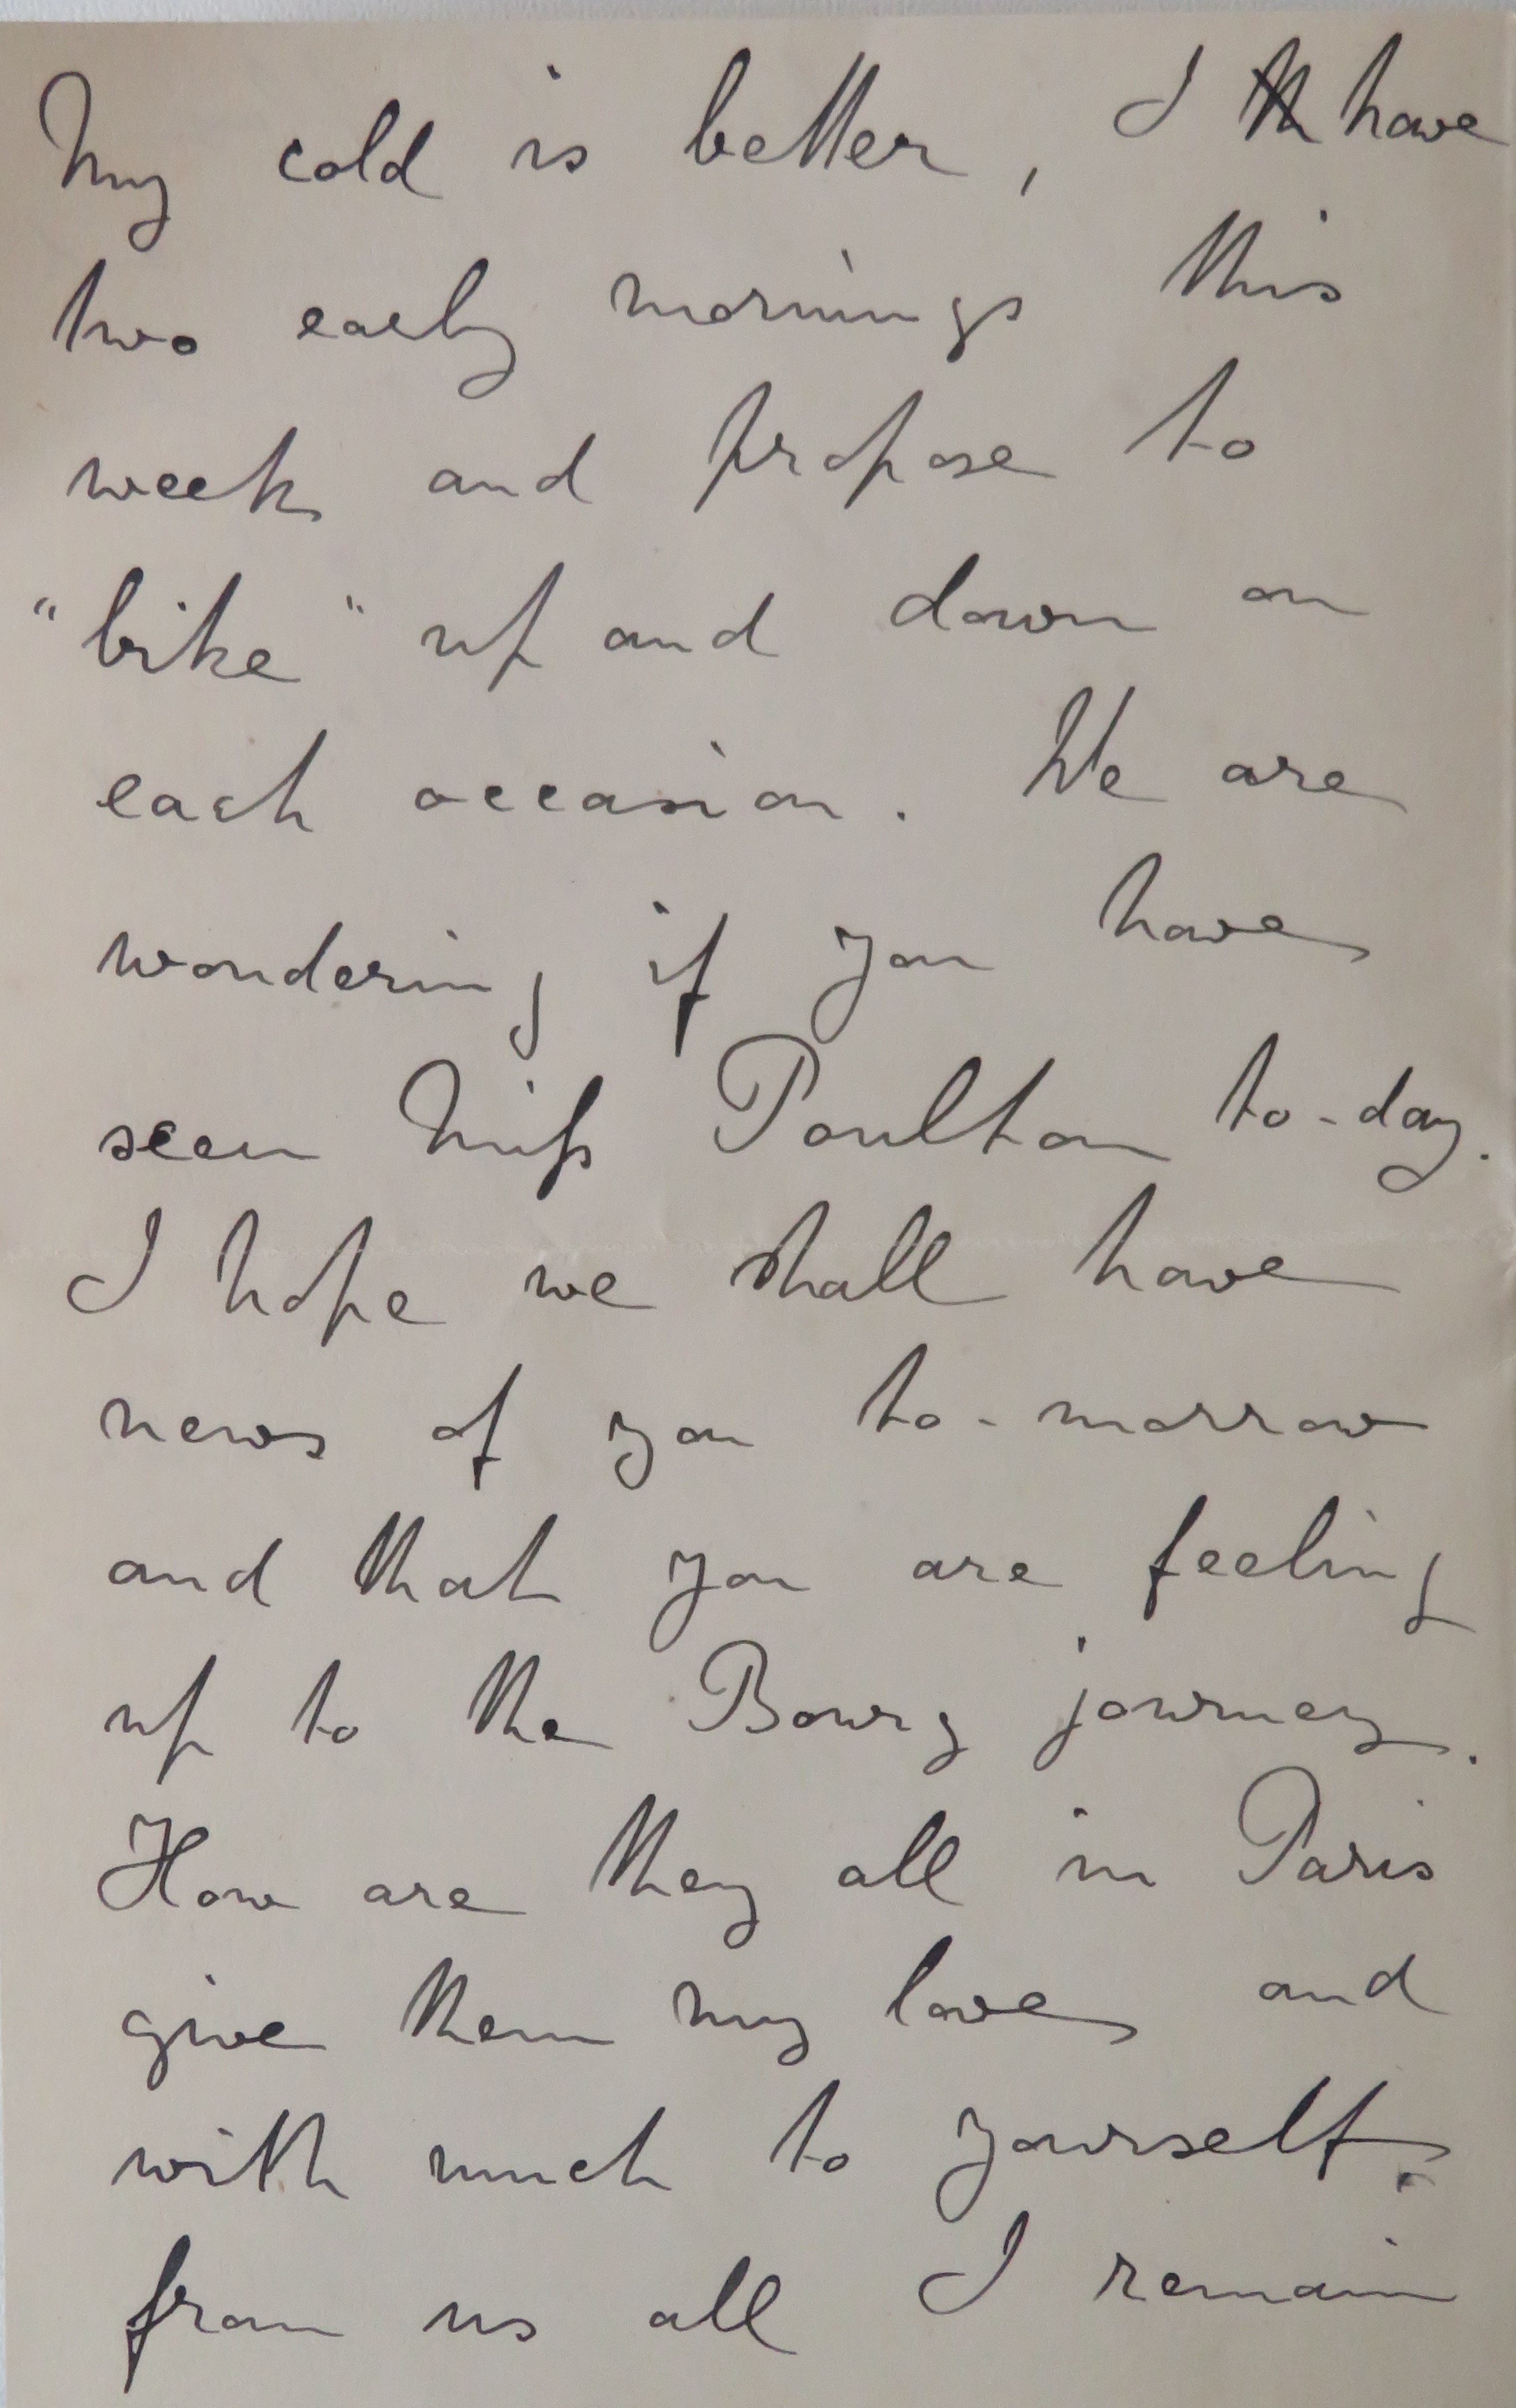 My cold is better, I have
two early mornings this
week and propose to
"bike" up and down on
each occasion. We are
wondering if you have
seen Miss Poulton to-day.
I hope we shall have
news of you to-morrow
and that you are feeling
up to the Bourg journey.
How are they all in Paris
give them my love and
with much to yourself.
from us all I remain